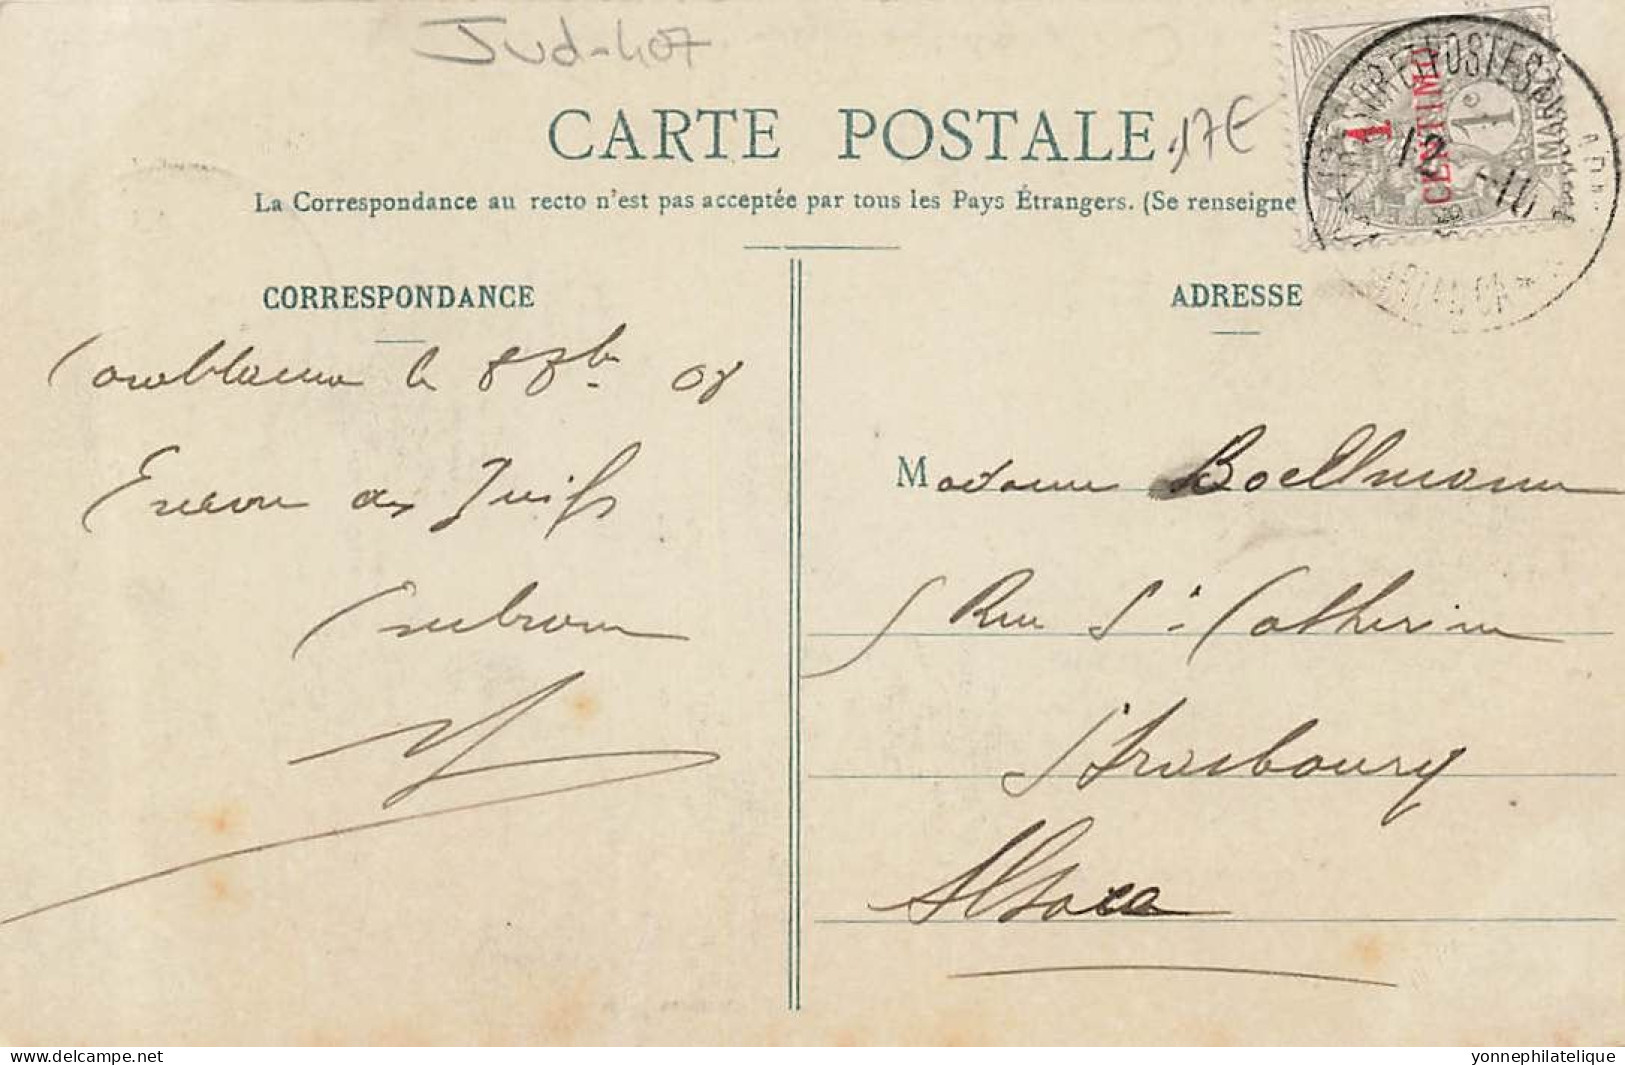 Jud-407
CARTE POSTALE
17€
La Correspondance au recto n'est pas acceptée par tous les Pays Étrangers. (Se renseigne
1
CENTIMO
1c
TRESOR ET POSTES AUX ARMEES
12
-11
CORRESPONDANCE
ADRESSE
Casablanca le 8 8bre 08
Encore des Juifs
Madame Boellmann
5 Rue Ste Catherine
Strasbourg
Alsace
delcampe.net
yonnephilatelique